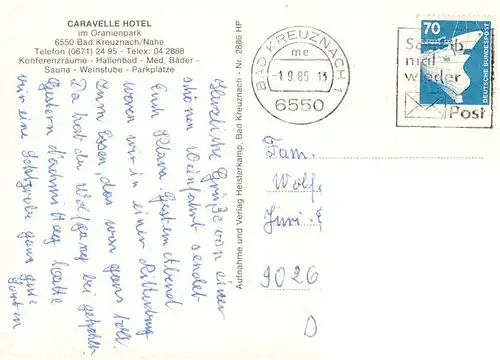 CARAVELLE HOTEL
im Oranienpark
6550 Bad Kreuznach/Nahe
Telefon (0671) 24 95 · Telex: 04 2888
Konferenzräume - Hallenbad - Med. Bäder -
Sauna - Weinstube - Parkplätze
Aufnahme und Verlag Heisterkamp, Bad Kreuznach - Nr. 2886 HP
BAD KREUZNACH 1
me
-1.9.85 13
6550
Schreib
mal
wieder
Post
70
DEUTSCHE BUNDESPOST
Herzliche Grüße von einer
schönen Weinfahrt sendet
Euch Klara. Gestern Abend
waren wir in einer
zum Essen, das war ganz toll.
Da hat der Wolfgang bei geholfen
Gestern hatte
wir eine ganz gute
Fam.
Wolf,
9026
D